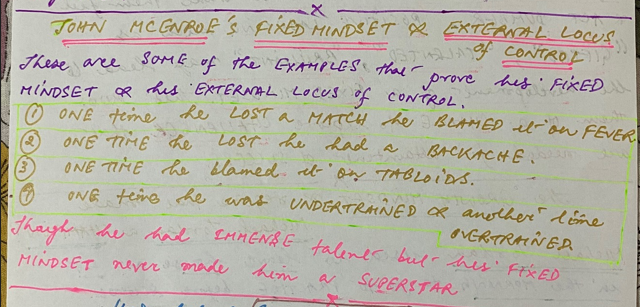 x
JOHN MCENROE's FIXED MINDSET & EXTERNAL LOCUS
of CONTROL
These are SOME of the EXAMPLES that prove his FIXED
MINDSET & his EXTERNAL LOCUS of CONTROL.
① ONE time he LOST a MATCH he BLAMED it on FEVER
② ONE TIME he LOST he had a BACKACHE.
③ ONE TIME he blamed it on TABLOIDS.
④ ONE time he was UNDERTRAINED & another time
OVERTRAINED.
Though he had IMMENSE talent but his FIXED
MINDSET never made him a SUPERSTAR